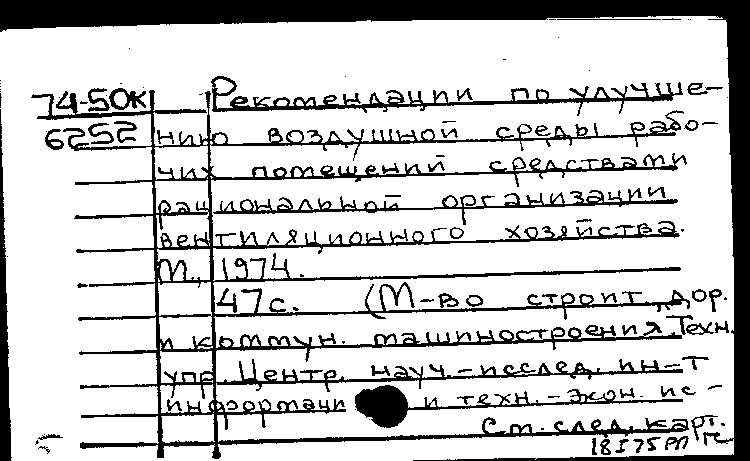 74-50К Рекомендации по улучше-
6252 нию воздушной среды рабо-
чих помещений средствами
рациональной организации
вентиляционного хозяйства.
М., 1974.
47с. (М-во строит., дор.
и коммун. машиностроения. Техн.
упр. Центр. науч.-исслед. ин-т
информаци и техн.-экон. ис-
См. след. карт.
18 I 75